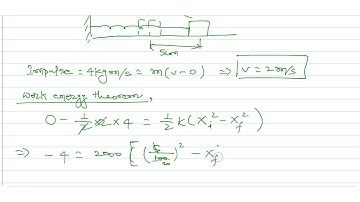 5cm
Impulse = 4kgm/s = m(v-0) ⇒ v = 2m/s
Work energy theorem,
0 - 1/2 x 2 x 4 = 1/2 k(x_i² - x_f²)
⇒ -4 = 2000 [(5/100)² - x_f